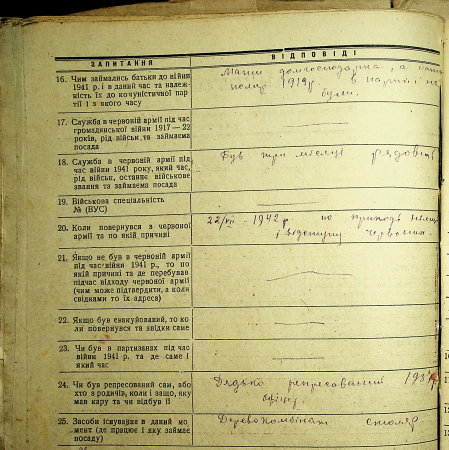 ЗАПИТАННЯ
ВІДПОВІДІ
16. Чим займались батьки до війни
1941 р. і в даний час та належ-
ність їх до комуністичної пар
тії і з якого часу
Мати домгосподарка, а
помер 1919 р в партії не
були.
17. Служба в червоній армії під час
громадянської війни 1917 — 22
років, рід військ, та займаєма
посада
18. Служба в червоній армії під
час війни 1941 року, який час,
рід військ, останнє військове
звання та займаєма посада
Був три місяці рядовий
19. Військова спеціальність
№ (ВУС)
20. Коли повернувся з червоної
армії та по якій причині
22/VII - 1942 р. по приході німців
і відступу червоних.
21. Якщо не був в червоній армії
під час війни 1941 р., то по
якій причині та де перебував
підчас відходу червоної армії
(чим може підтвердити, а коли
свідками то їх адреса)
22. Якщо був евакуйований, то ко
ли повернувся та звідки саме
23. Чи був в партизанах під час
війни 1941 р. та де саме і
який час
24. Чи був репресований сам, або
хто з родичів, коли і защо, яку
мав кару та чи відбув її
Дядько репресований
25. Засоби існування в даний мо
мент (де працює і яку займає
посаду)
Деревокомбінат столяр